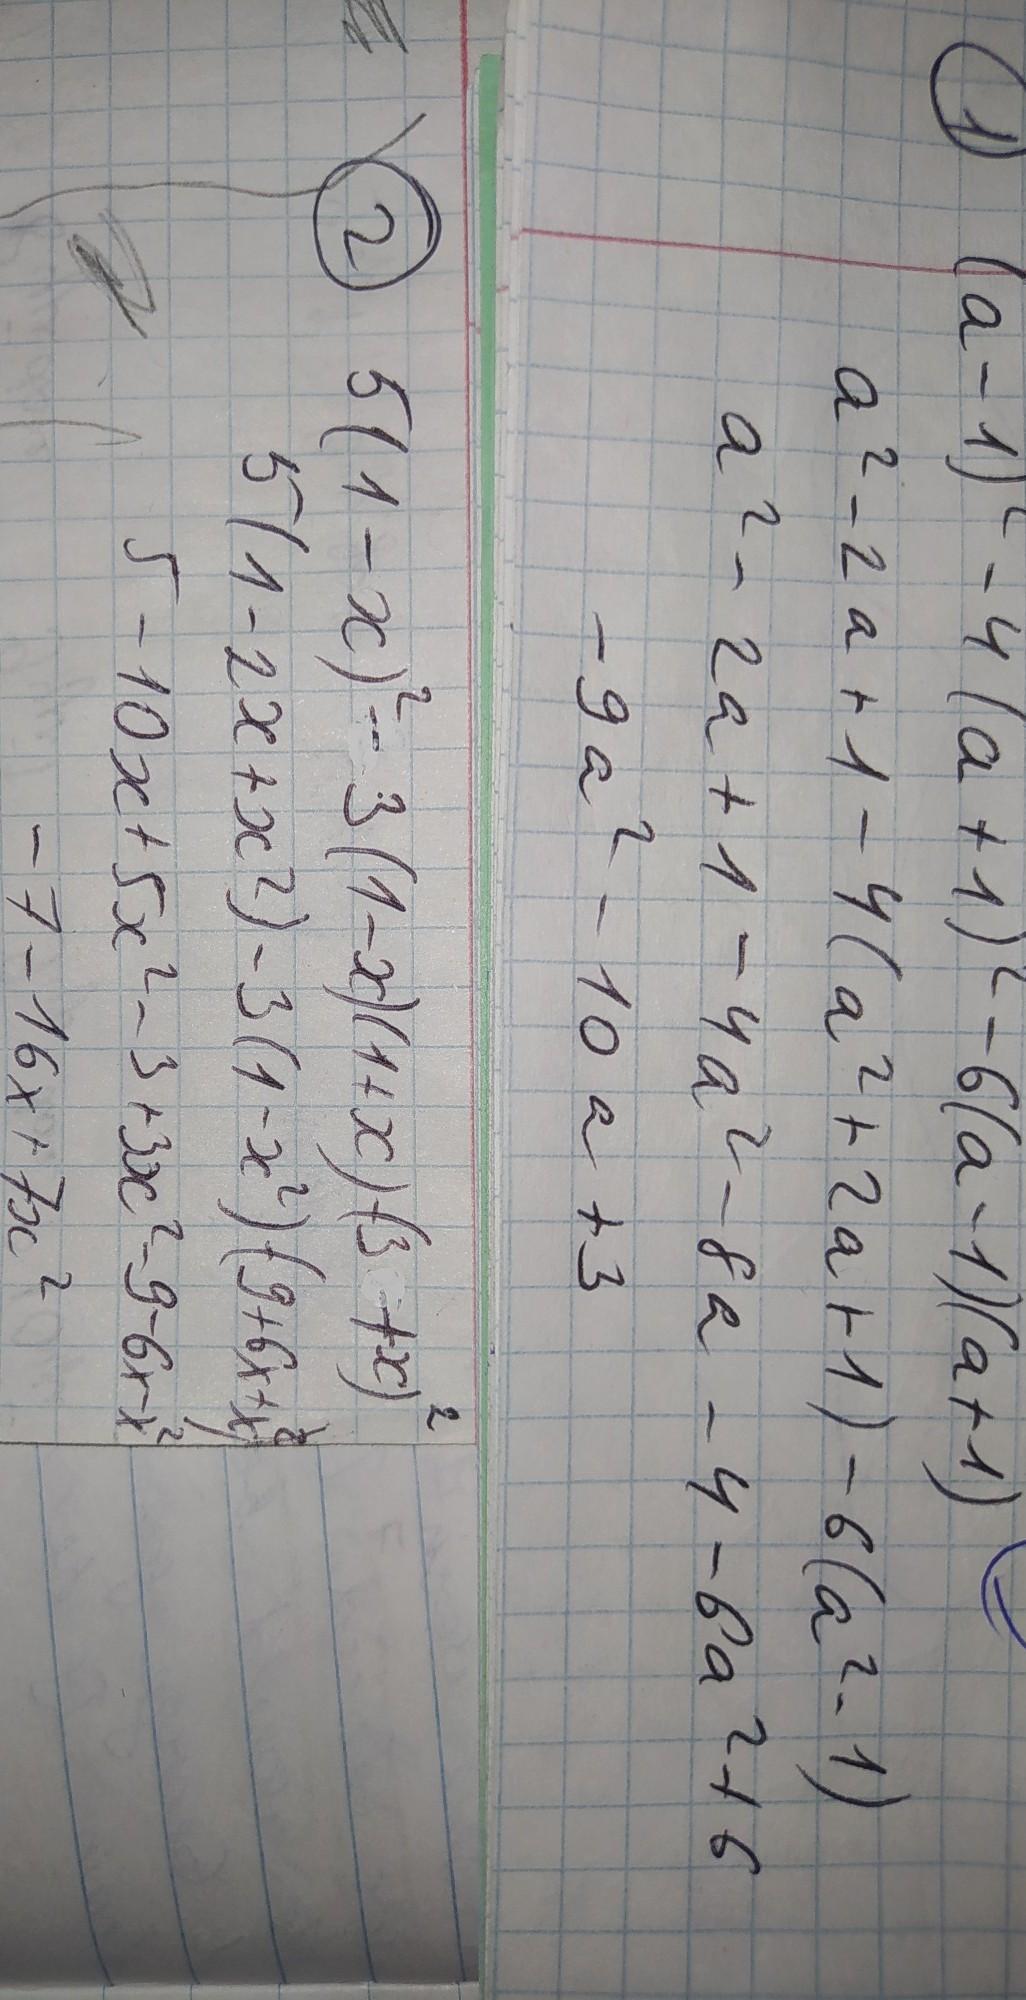 1) (a-1)² - 4(a+1)² - 6(a-1)(a+1)
a² - 2a + 1 - 4(a² + 2a + 1) - 6(a² - 1)
a² - 2a + 1 - 4a² - 8a - 4 - 6a² + 6
- 9a² - 10a + 3
2 5(1-x)² - 3(1-x)(1+x) - (3+x)²
5(1-2x+x²) - 3(1-x²) - (9+6x+x²)
5 - 10x + 5x² - 3 + 3x² - 9 - 6x - x²
- 7 - 16x + 7x²